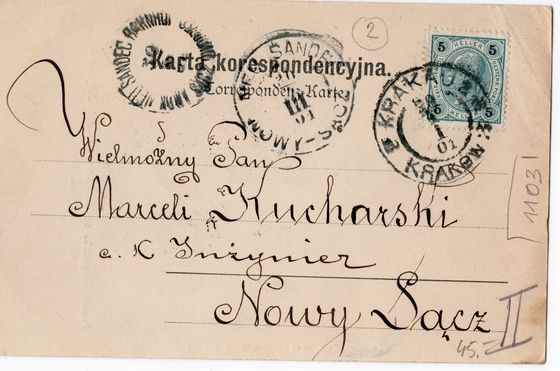 2
Karta korespondencyjna.
Correspondenz-Karte
NEU SANDEC BAHNHOF
NEU SANDEC
III
01
NOWY-SĄCZ
5 5
HELLER
5 5
KRAKAU
01
KRAKÓW
Wielmożny Pan
Marceli Kucharski
c. K Inżynier
Nowy Sącz
11031
45.-
II